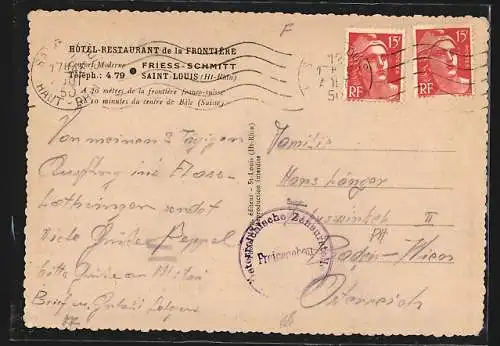 HÔTEL-RESTAURANT de la FRONTIÈRE
Confort Moderne ● FRIESS-SCHMITT
Téléph.: 4.79 SAINT-LOUIS (Ht-Rhin)
A 20 mètres de la frontière franco-suisse
10 minutes du centre de Bâle (Suisse)
F
15F
RF
15F
RF
HAUT-RHIN
50
Von meinem 3 tägigen
Ausflug ins Elsass-
Lothringen sendet
viele Grüße Peppel
bitte Grüße an
Brief u. folgen
éditeur - St-Louis (Ht-Rhin)
Reproduction interdite
Familie
Hans Länger
II
Baden-Wien
Österreich
Österreichische Zensurstelle
Freigegeben